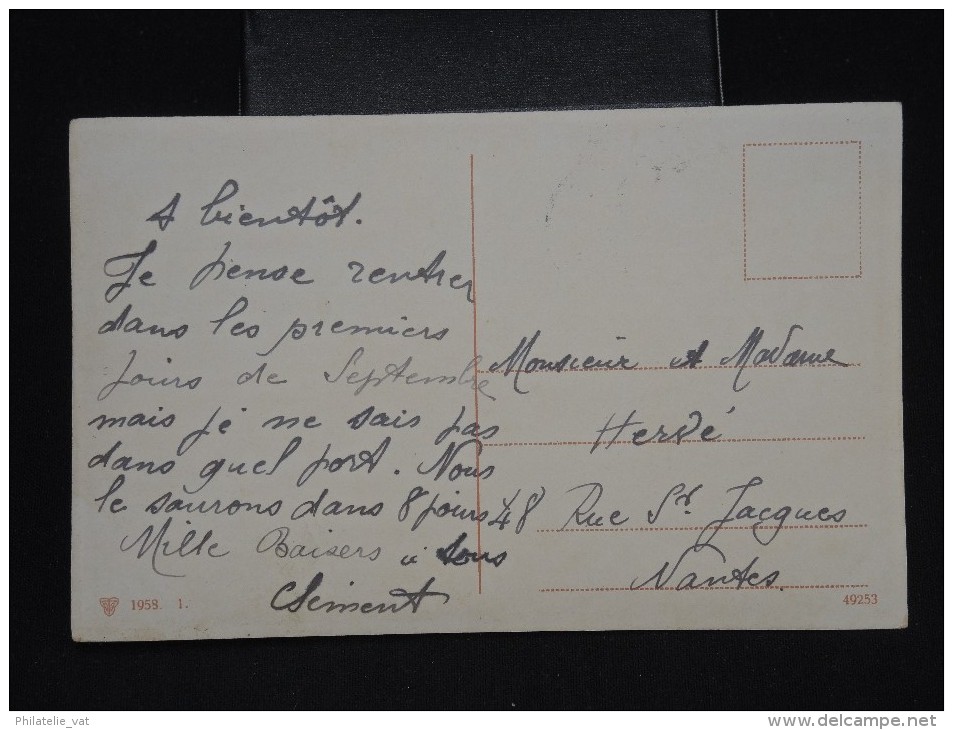 A bientôt.
Je pense rentrer
dans les premiers
jours de Septembre
mais je ne sais pas
dans quel port. Nous
le saurons dans 8 jours
Mille Baisers à tous
Clément
Monsieur et Madame
Hervé
48 Rue St. Jacques
Nantes
1958. 1.
49253
Philatelie_vat
www.delcampe.net